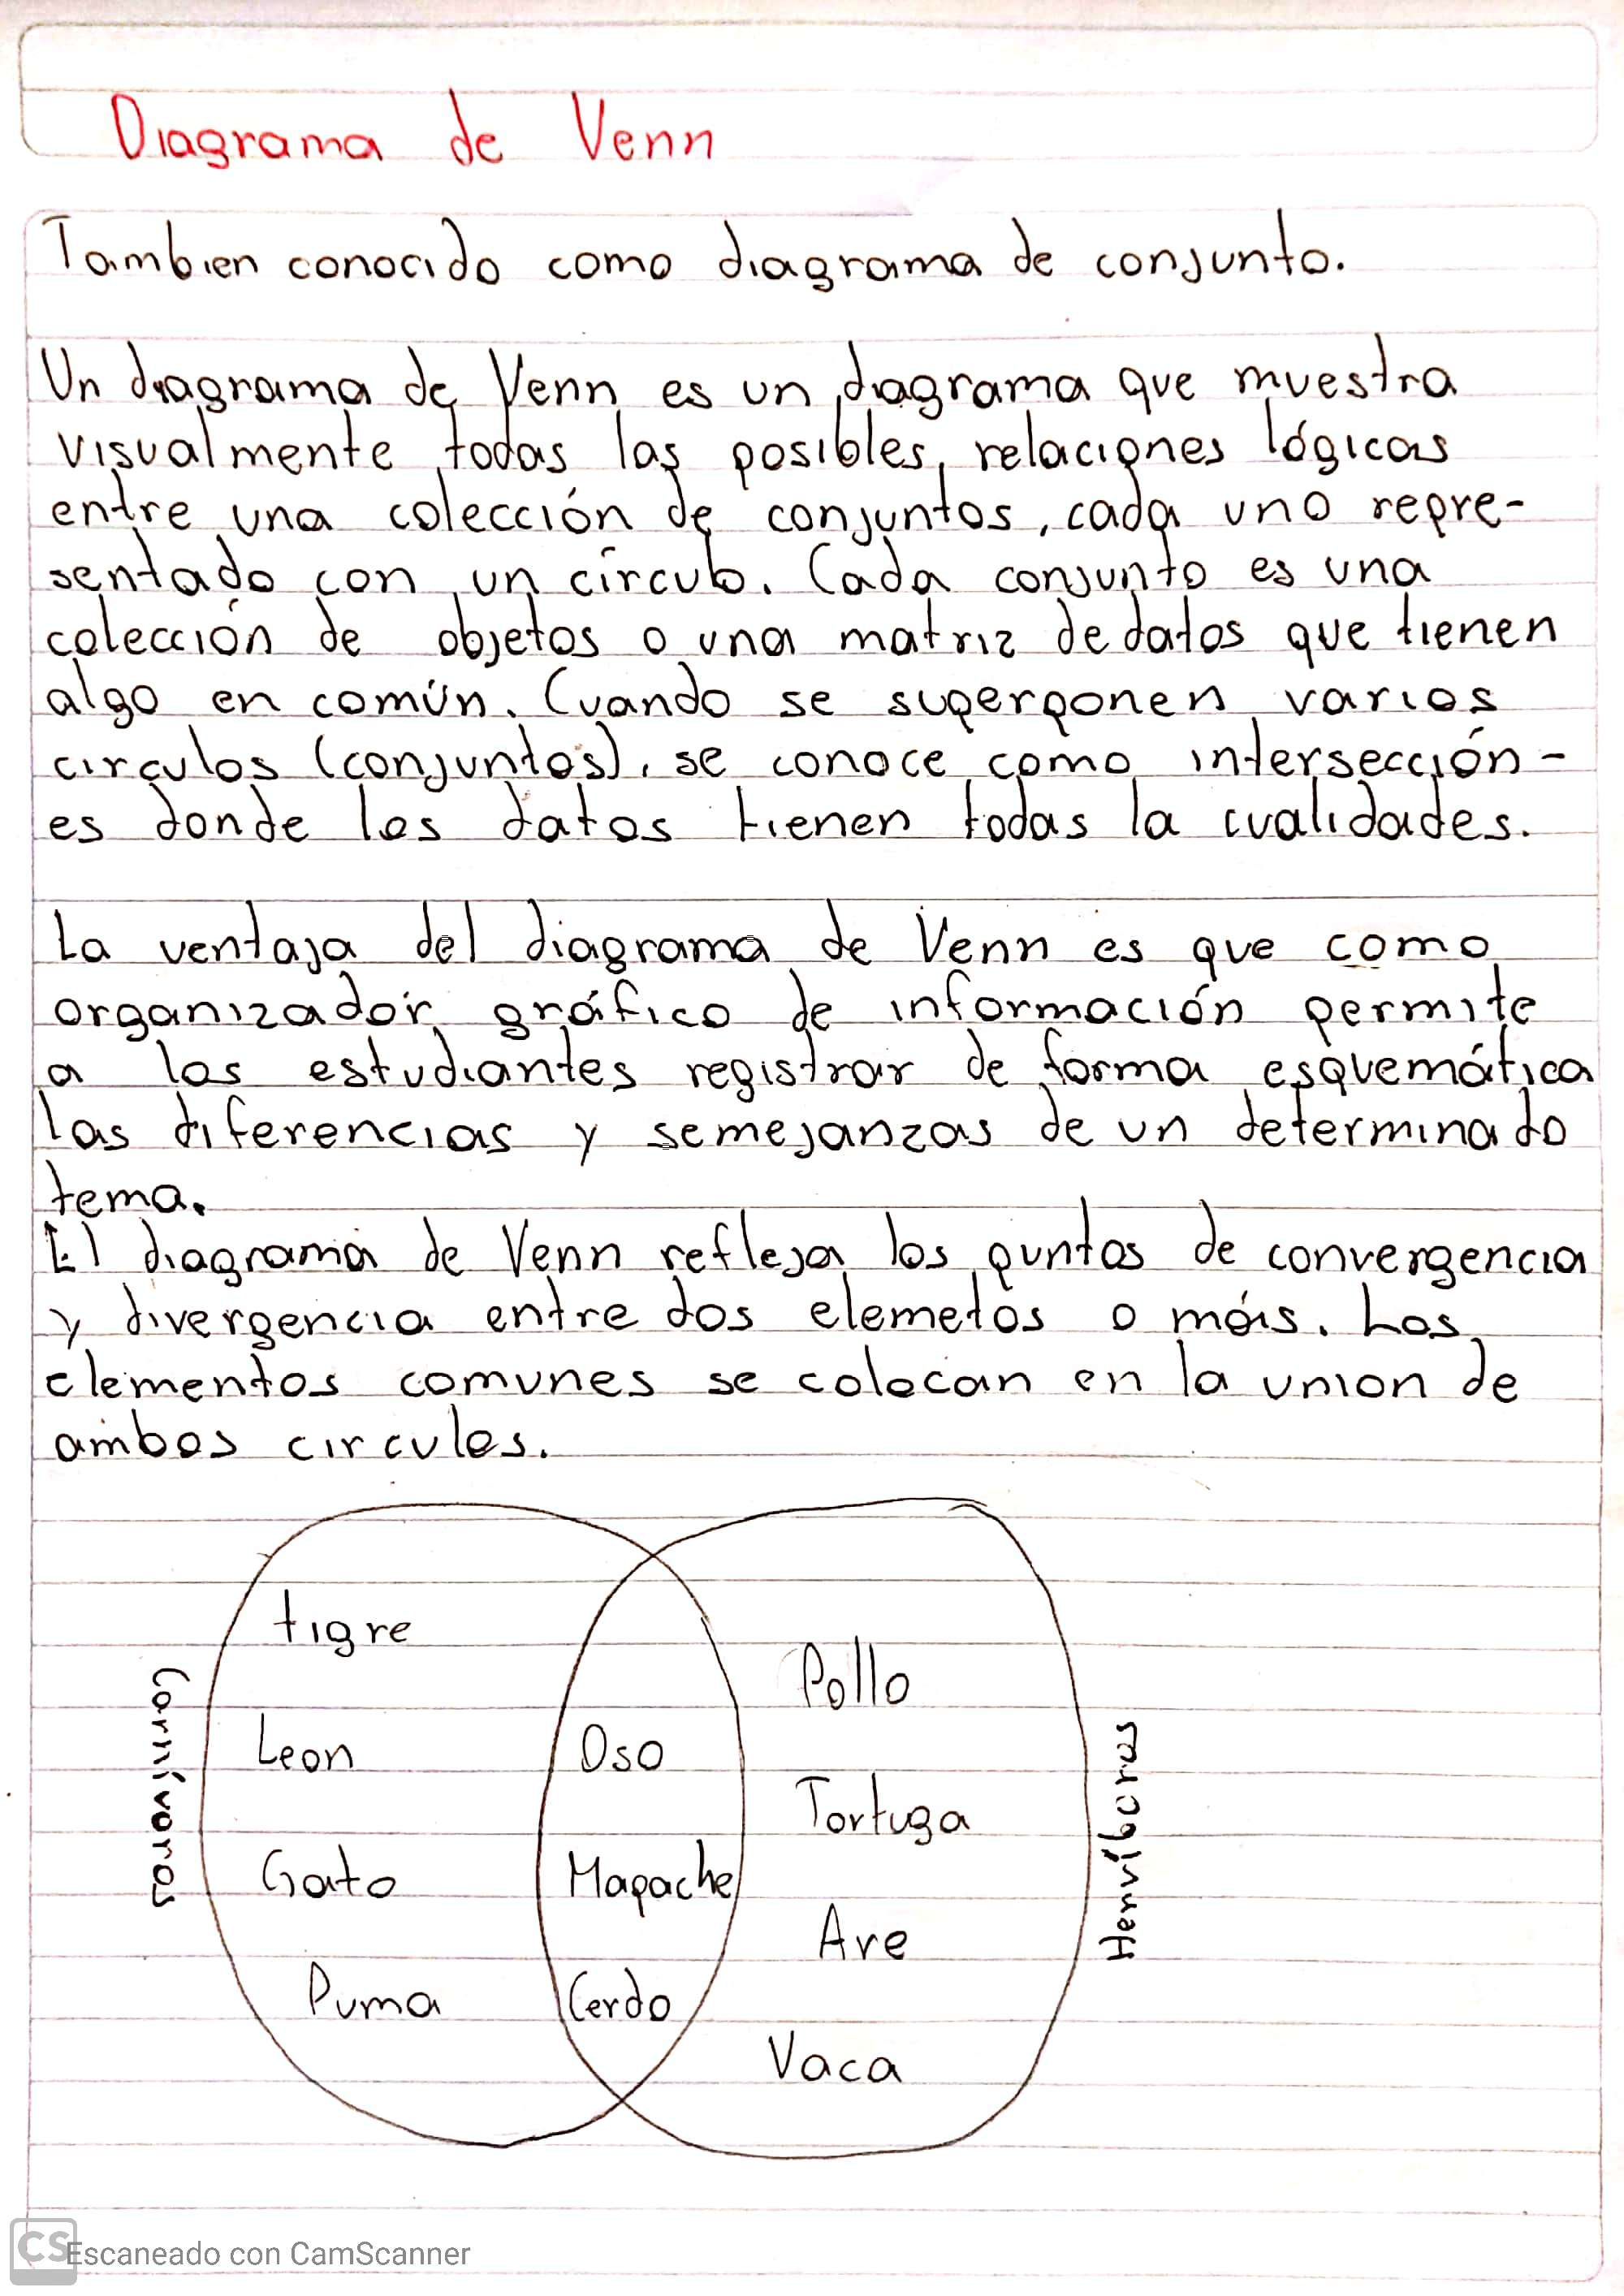 Diagrama de Venn
Tambien conocido como diagrama de conjunto.
Un diagrama de Venn es un diagrama que muestra
visualmente todas las posibles relaciones lógicas
entre una colección de conjuntos, cada uno repre-
sentado con un círculo. Cada conjunto es una
colección de objetos o una matriz de datos que tienen
algo en común. Cuando se superponen varios
circulos (conjuntos), se conoce como intersección -
es donde los datos tienen todas la cualidades.
La ventaja del diagrama de Venn es que como
organizador gráfico de información permite
a los estudiantes registrar de forma esquemática
las diferencias y semejanzas de un determinado
tema.
El diagrama de Venn refleja los puntos de convergencia
y divergencia entre dos elemetos o más. Los
elementos comunes se colocan en la union de
ambos circulos.
tigre
Pollo
Carnívoros
Leon
Oso
Tortuga
Henvíboros
Gato
Mapache
Ave
Puma
Cerdo
Vaca
CS Escaneado con CamScanner